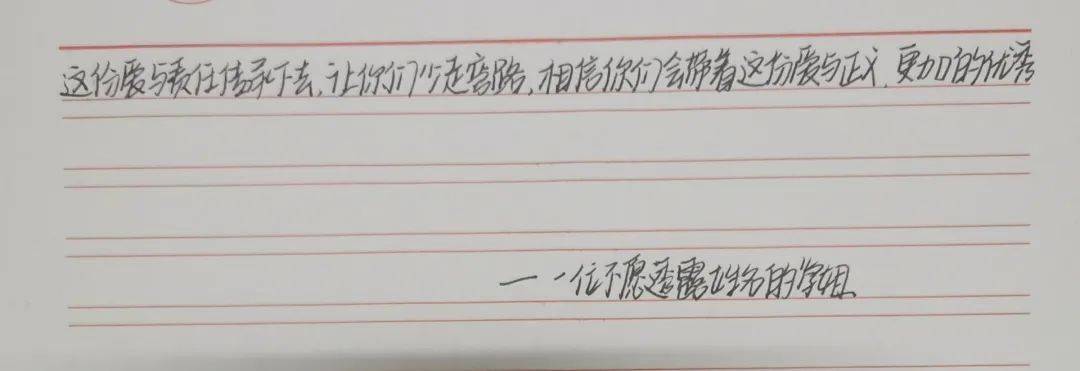 这份爱与责任传承下去,让你们少走弯路,相信你们会带着这份爱与正义,更加的优秀
——一位不愿透露姓名的学姐